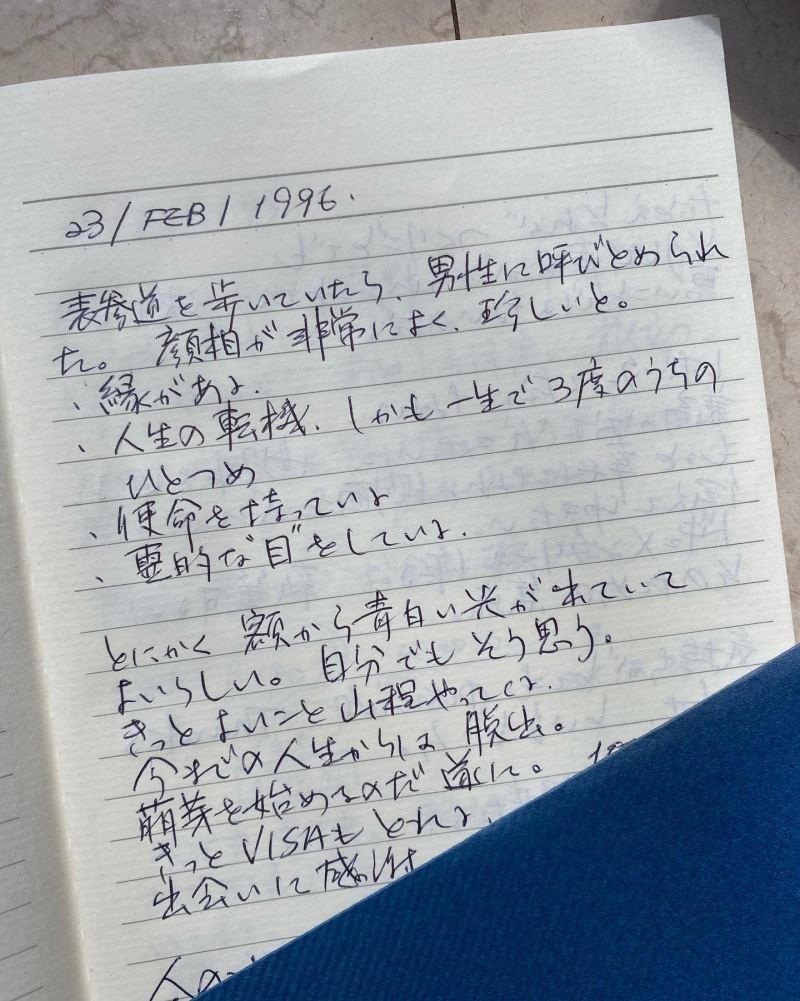 23/FEB/1996.
表参道を歩いていたら、男性に呼びとめられ
た。顔相が非常によく、珍しいと。
、縁がある、
、人生の転機、しかも一生で3度のうちの
ひとつめ
、使命を持っている
、霊的な"目"をしている.
とにかく額から青白い光が出ていて
よいらしい。自分でもそう思う。
きっとよいこと山程やってくる.
今までの人生からは脱出。
萌芽を始めるのだ 道に。
きっとVISAもとれる.
出会いに感謝
人の